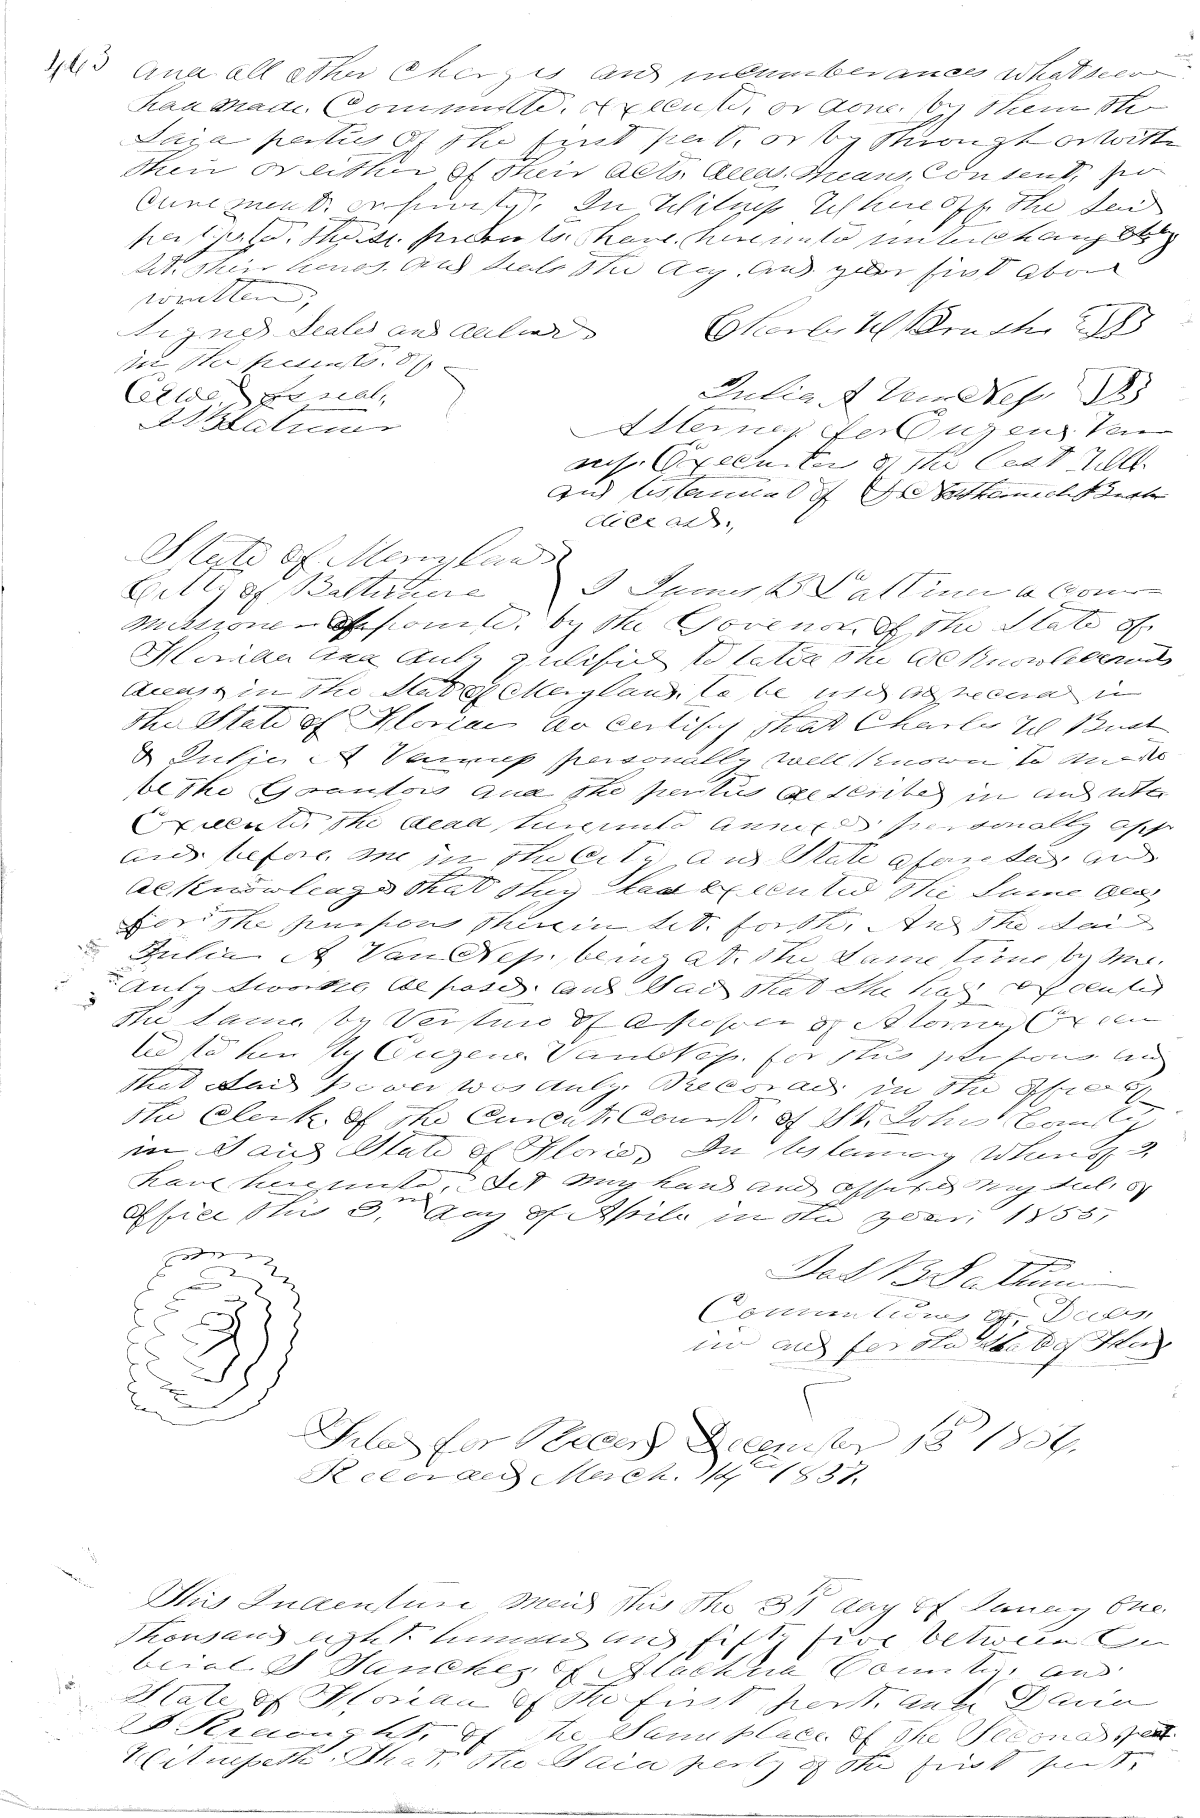 443
and all other charges and incumberances whatsoever
had made. Committed. executed, or done. by them the
Said parties of the first part, or by through or with
their or either of their acts. deeds. means. Consent, pro
curement. or privity. In Witness Whereoff. the Said
parties to. these. presents. have. hereunto interchangebly
set. their hands. and Seals the day. and year first above
written,
Signed Sealed and delivered
in the presents. off.
Charles W Bush
Julia A VanNess.
J B Latimer
Attorney for Eugene Van
ness. Executor of the Last Will.
and testament of Nathaniel Bush
diceased.,
State of Merryland
Citty of Baltimore } I James B Lattimer a Com
missione appointed. by the Govenor. of the State of
Florida and duly qulified to take the acknowledments
deeds in the State of Maryland. to be used as record in
the State of Florida do certify that Charles W Bush
& Julia A Vanness personally well known to me to
be the Grantors and the parties described in and who
Executed the dead hereunto annexed personally app
ard. before. me in the City and State aforesaid. and
acknowleaged that they had executed the Same deed
for the purpous therein set. forth. And the Said
Julia A VanNess. being at. the Same time by me.
duly Sworne, deposed. and Said that She had executed
the Same. by Vertue of a power of Atorney Execu
ted to her by Eugene. VanNess. for this purpous and
that Said power was duly. Recorded. in the office of
the Clerk. of the Curcut. Court. of St. Johns County
in Said State of Florida In testamony Whereof I
have hereunto. Set my hand and affixed my Seal. of
office this 3. day of Aprile in the year. 1855,
Jas B Lattimer
of Deeds.
in and for the State of Flor
Filed for Record December 18th 1856.
Recorded March. 14th 1857.
This Indenture Maid this the 31st day of January One.
thousand eight. hundred and fifty five between
S Sanchez. of Alachua County. and
State of Florida of the first part. and David
of the Same place. of the Second part.
Witnesseth. That. the Said party of the first part.